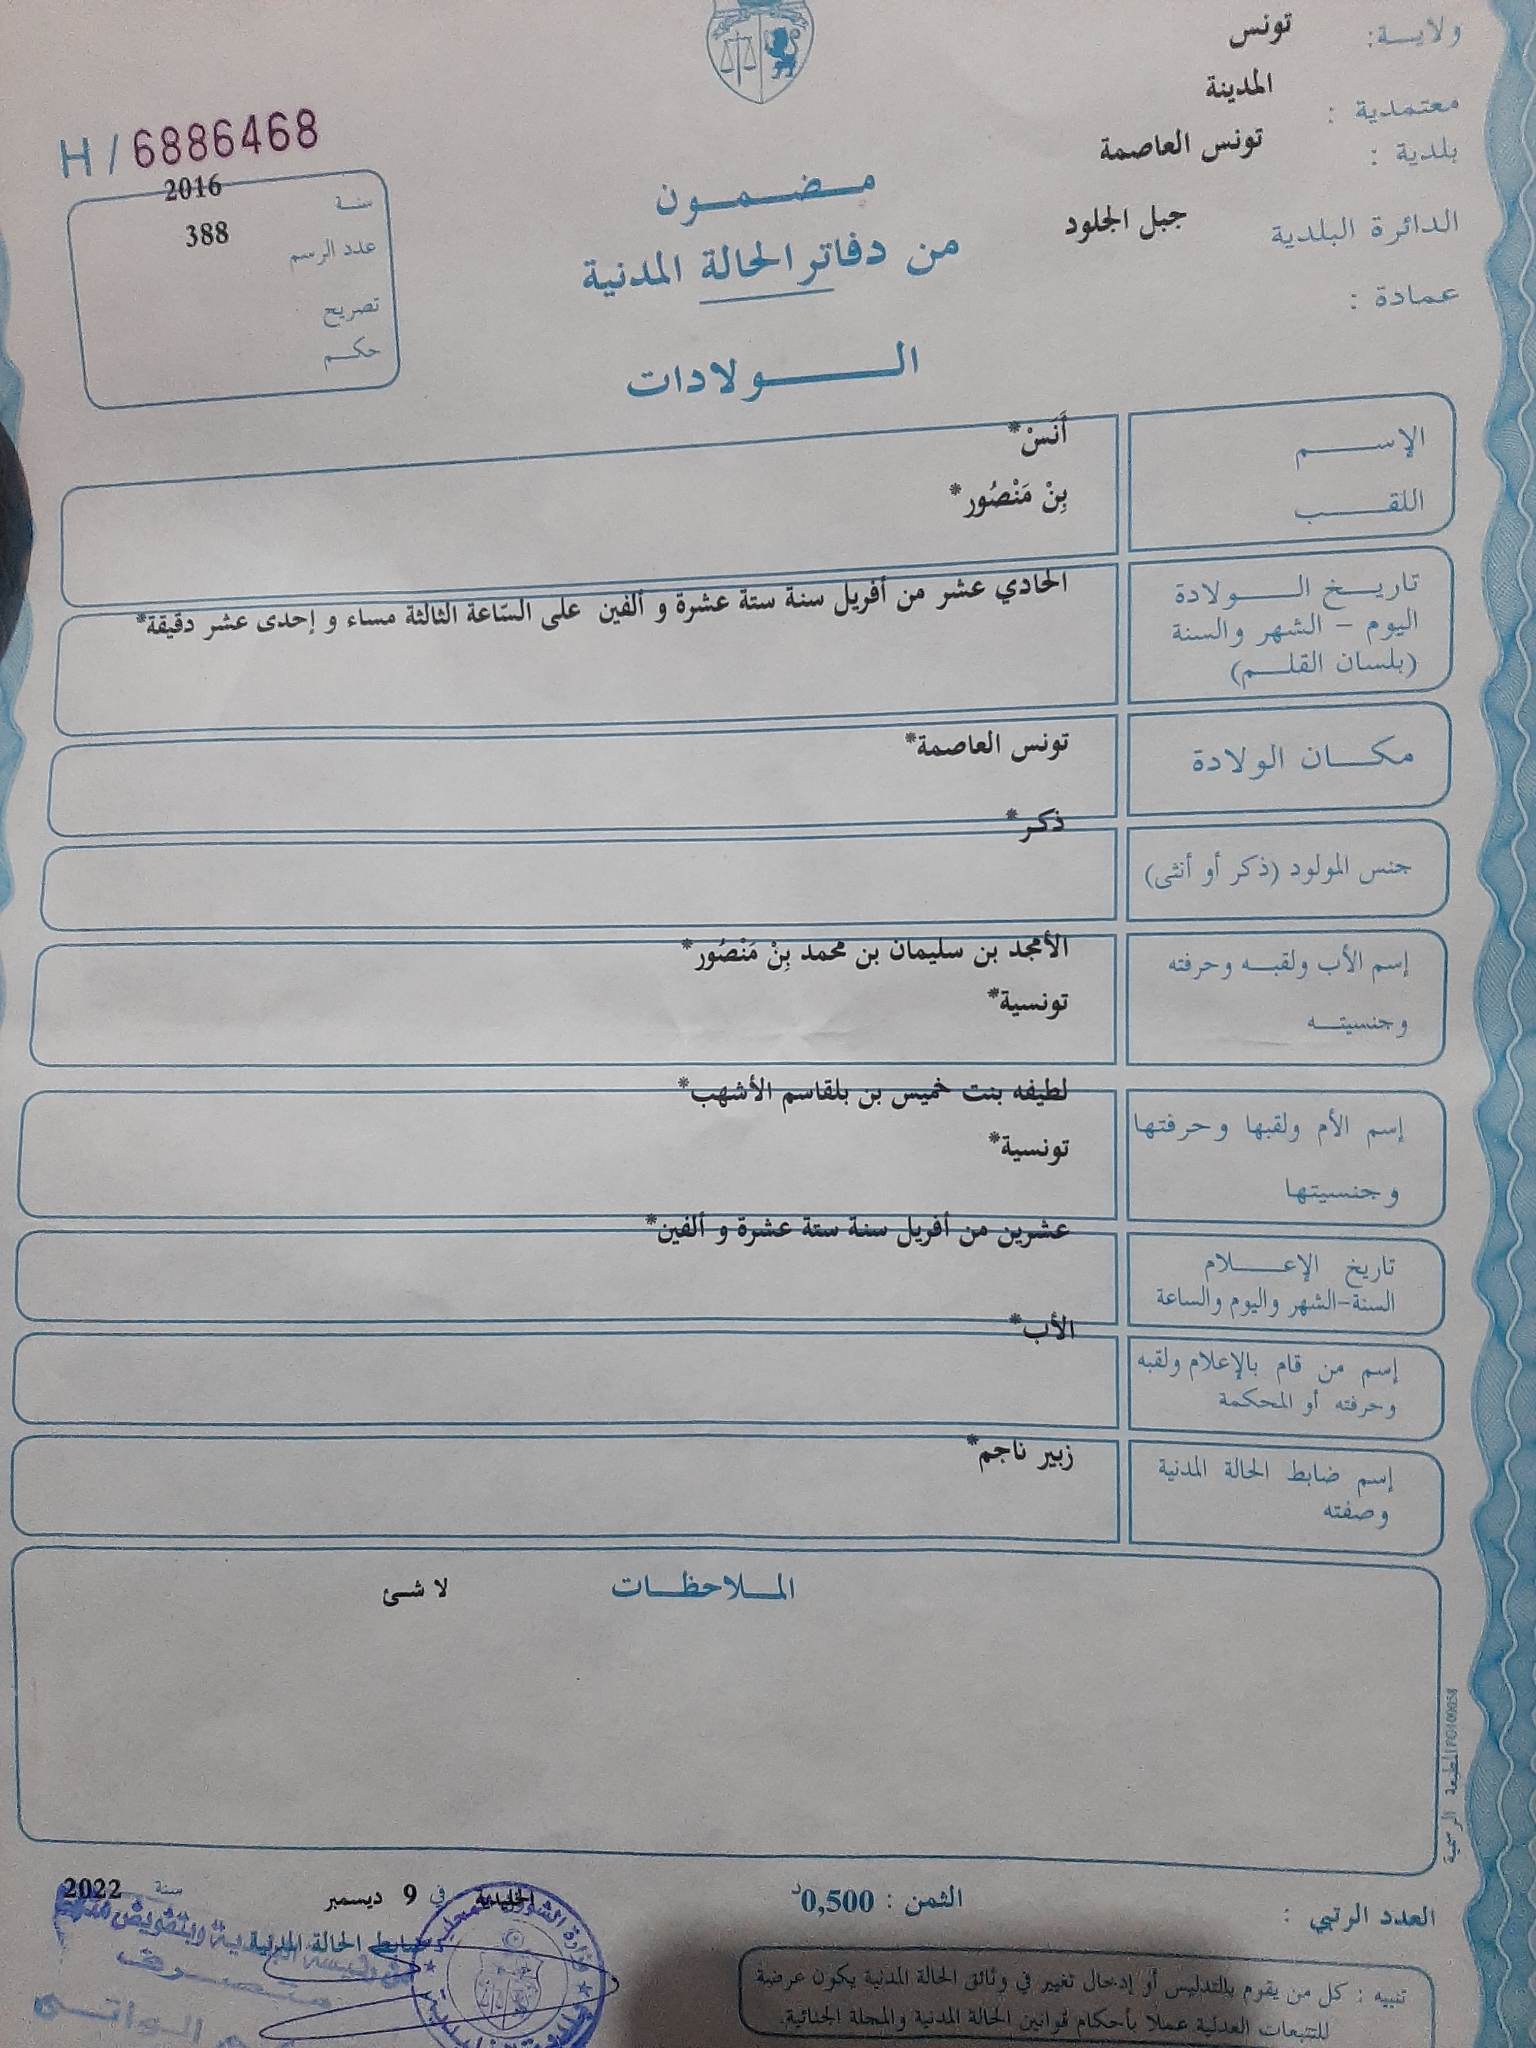 ولايـــة: تونس
معتمدية : المدينة
بلدية : تونس العاصمة
الدائرة البلدية جبل الجلود
عمادة :
H/6886468
سنـة 2016
عدد الرسم 388
تصريح
حكـــم
مـــضـــمـــون
من دفاتر الحالة المدنية
الــــــــولادات
الإســــــم أَنَسْ*
اللقــــــب بِنْ مَنْصُور*
تاريــــخ الــــــولادة الحادي عشر من أفريل سنة ستة عشرة و ألفين على السّاعة الثالثة مساء و إحدى عشر دقيقة*
اليوم - الشهر والسنة
(بلسان القلــم)
مكـــــان الولادة تونس العاصمة*
جنس المولود (ذكر أو أنثى) ذكر*
إسم الأب ولقبـــه وحرفته الأمجد بن سليمان بن محمد بِنْ مَنْصُور*
وجنسيتـــه تونسية*
إسم الأم ولقبها وحرفتها لطيفه بنت خميس بن بلقاسم الأشهب*
وجنسيتها تونسية*
تاريخ الإعـــــلام عشرين من أفريل سنة ستة عشرة و ألفين*
السنة-الشهر واليوم والساعة
إسم من قام بالإعلام ولقبه الأب*
وحرفته أو المحكمة
إسم ضابط الحالة المدنية زبير ناجم*
وصفته
المـــلاحظـــات لا شئ
المطبعة الرسمية
العدد الرتبي :
الثمن : 0,500د
الخليدية في 9 ديسمبر سنة 2022
ضابط الحالة المدنية
متصـــرف
تنبيه : كل من يقوم بالتدليس أو إدخال تغيير في وثائق الحالة المدنية يكون عرضة
للتتبعات العدلية عملا بأحكام قوانين الحالة المدنية والمجلة الجنائية.